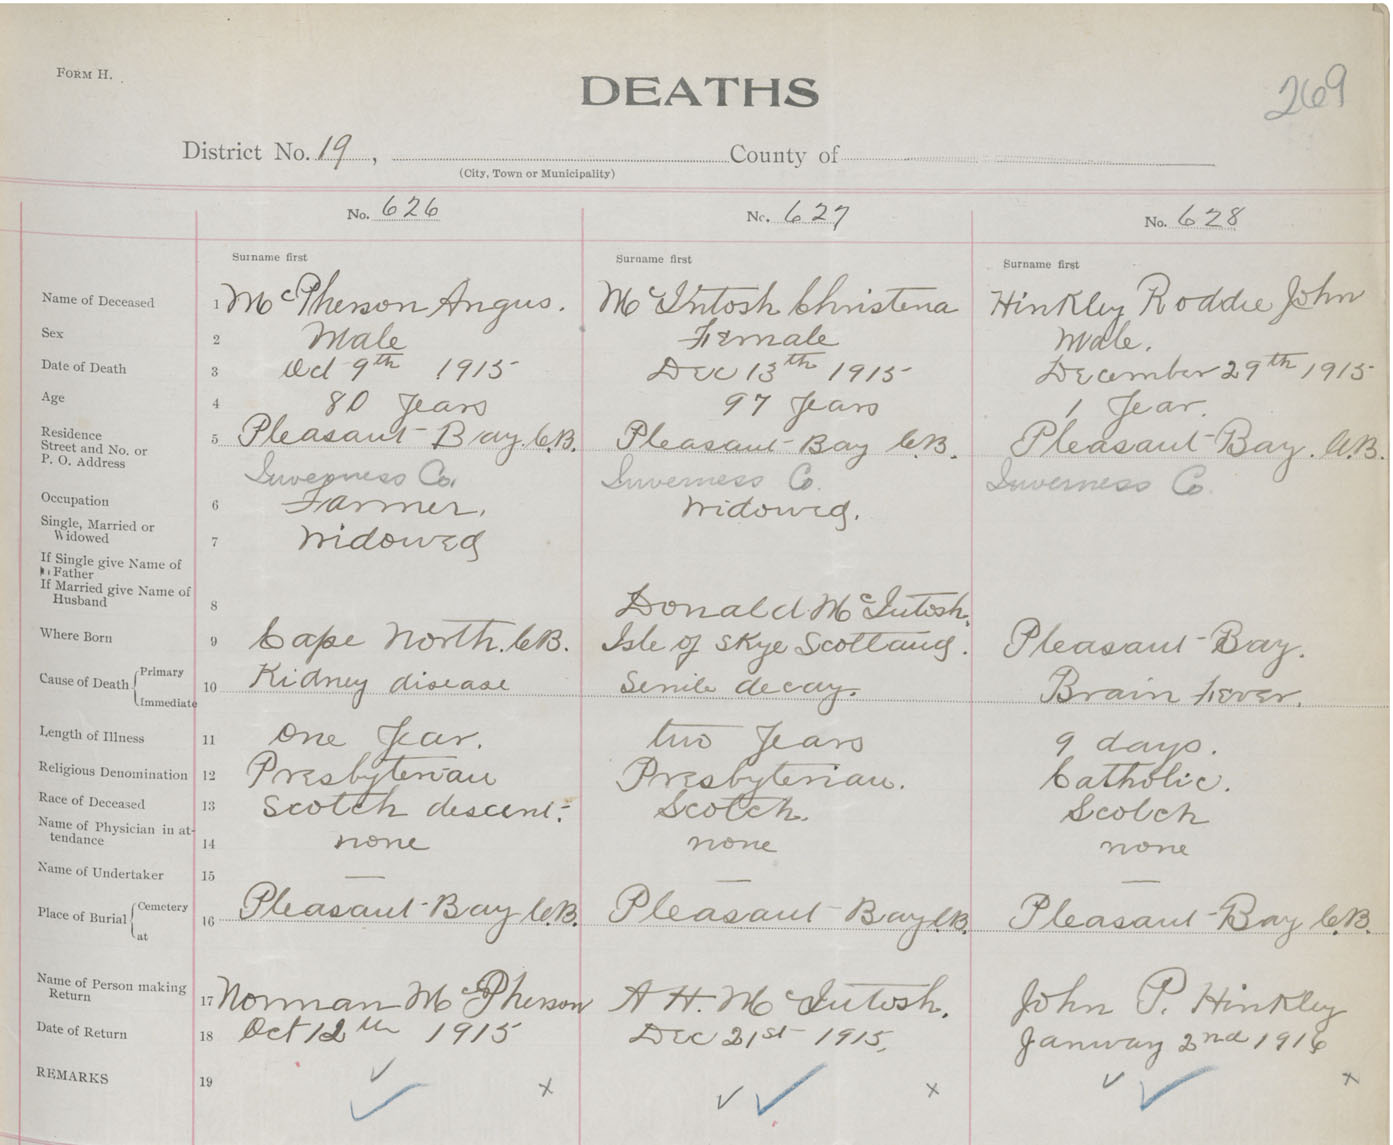 FORM H.
DEATHS
269
District No. 19, County of
(City, Town or Municipality)
No. 626 No. 627 No. 628
Surname first Surname first Surname first
Name of Deceased 1 McPherson Angus. McIntosh Christena Hinkley Roddie John
Sex 2 Male Female Male.
Date of Death 3 Oct 9th 1915 Dec 13th 1915 December 29th 1915
Age 4 80 Years 97 Years 1 Year.
Residence
Street and No. or
P. O. Address 5 Pleasant Bay. C.B. Pleasant Bay C.B. Pleasant Bay. C.B.
Inverness Co. Inverness Co. Inverness Co.
Occupation 6 Farmer. Widowed.
Single, Married or
Widowed 7 Widowed
If Single give Name of
Father
If Married give Name of
Husband 8 Donald McIntosh.
Where Born 9 Cape North. C.B. Isle of Skye Scotland. Pleasant Bay.
Cause of Death Primary
Immediate 10 Kidney disease Senile decay. Brain Fever.
Length of Illness 11 One Year. two Years 9 days.
Religious Denomination 12 Presbyterian Presbyterian. Catholic.
Race of Deceased 13 Scotch descent. Scotch. Scotch
Name of Physician in at-
tendance 14 none none none
Name of Undertaker 15 — — —
Place of Burial Cemetery
at 16 Pleasant Bay C.B. Pleasant Bay C.B. Pleasant Bay C.B.
Name of Person making
Return 17 Norman McPherson A H. McIntosh. John P. Hinkley
Date of Return 18 Oct 12th 1915 Dec 21st 1915. January 2nd 1916
REMARKS 19 ✓ x ✓ x ✓ x